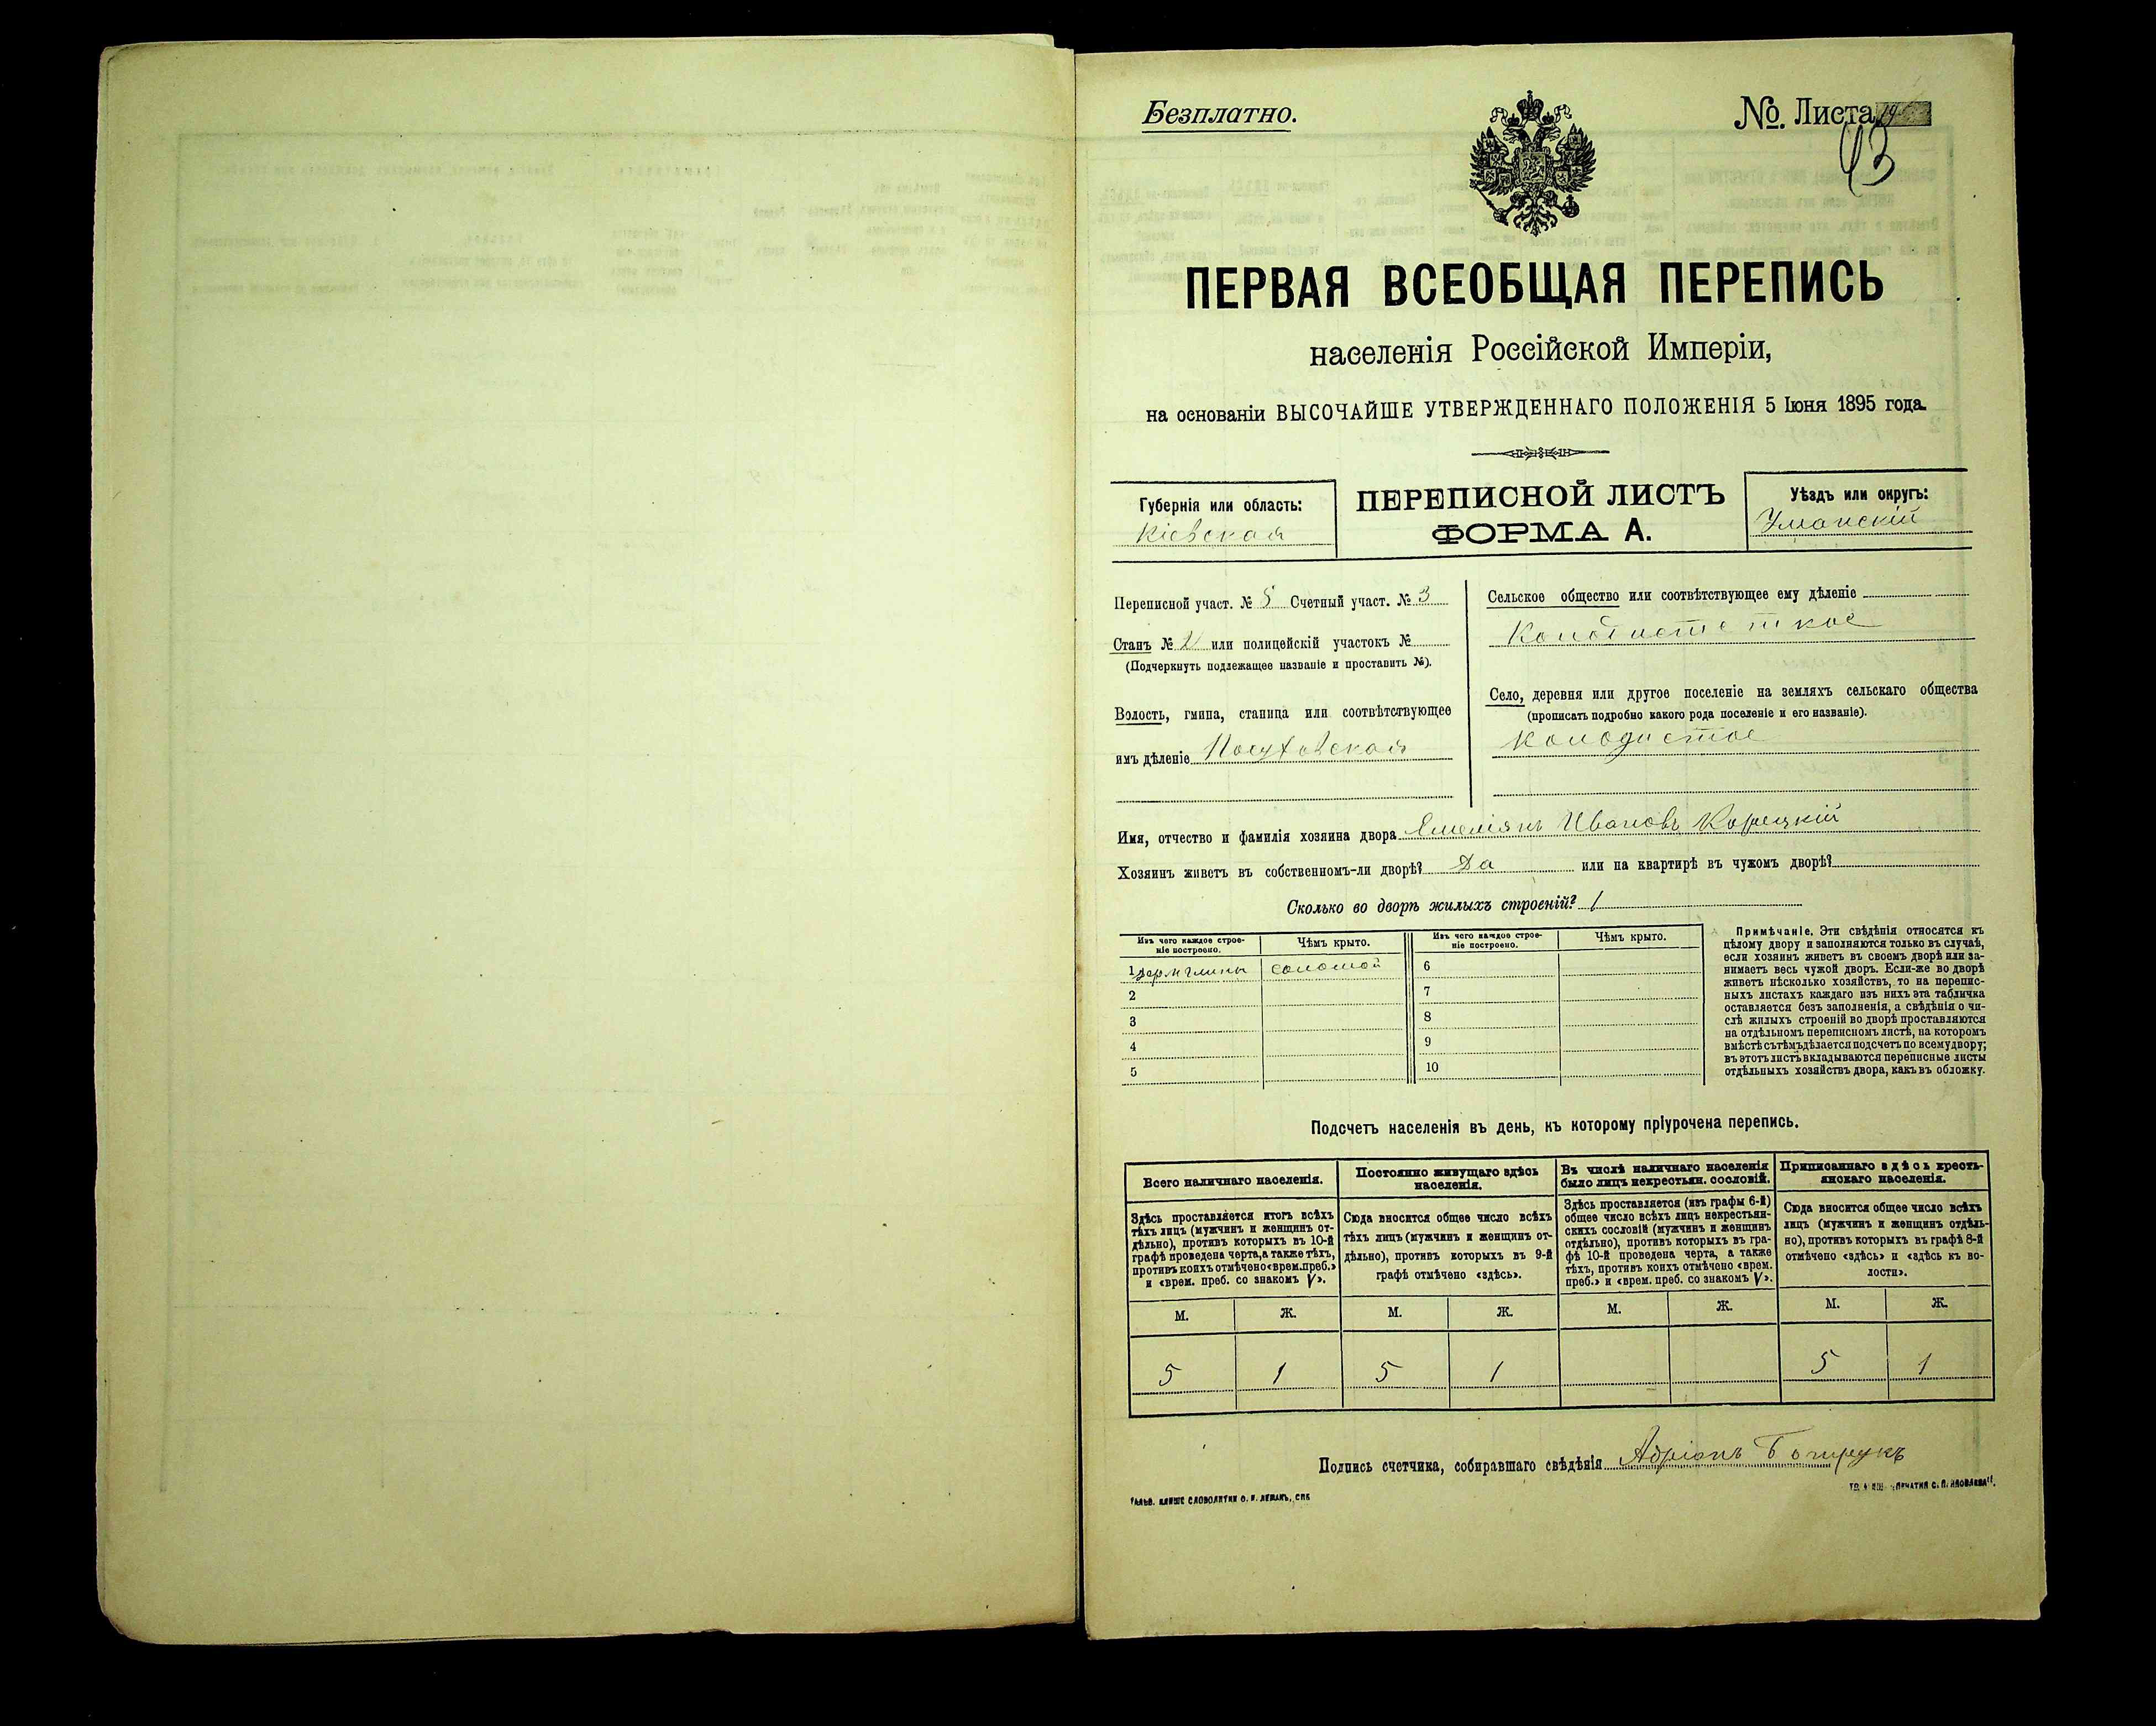 Безплатно.
№ Листа 19
43
ПЕРВАЯ ВСЕОБЩАЯ ПЕРЕПИСЬ
населенія Россійской Имперіи,
на основаніи ВЫСОЧАЙШЕ УТВЕРЖДЕННАГО ПОЛОЖЕНІЯ 5 Іюня 1895 года.
Губернія или область:
Кіевская
ПЕРЕПИСНОЙ ЛИСТЪ
ФОРМА А.
Уѣздъ или округъ:
Уманскій
Переписной участ. № 5 Счетный участ. № 3
Станъ № 2 или полицейскій участокъ №
(Подчеркнуть подлежащее названіе и проставить №).
Волость, гмина, станица или соотвѣтствующее
имъ дѣленіе
Сельское общество или соотвѣтствующее ему дѣленіе
Село, деревня или другое поселеніе на земляхъ сельскаго общества
(прописать подробно какого рода поселеніе и его названіе).
Колодистое
Имя, отчество и фамилія хозяина двора Емеліянъ Ивановъ Корецкій
Хозяинъ живетъ въ собственномъ-ли дворѣ? Да или на квартирѣ въ чужомъ дворѣ?
Сколько во дворѣ жилыхъ строеній? 1
Изъ чего каждое строе-
ніе построено.
Чѣмъ крыто.
Изъ чего каждое строе-
ніе построено.
Чѣмъ крыто.
1 дер. и глины соломой 6
2 7
3 8
4 9
5 10
Примѣчаніе. Эти свѣдѣнія относятся къ
цѣлому двору и заполняются только въ случаѣ,
если хозяинъ живетъ въ своемъ дворѣ или за-
нимаетъ весь чужой дворъ. Если-же во дворѣ
живетъ нѣсколько хозяйствъ, то на перепис-
ныхъ листахъ каждаго изъ нихъ эта табличка
оставляется безъ заполненія, а свѣдѣнія о чи-
слѣ жилыхъ строеній во дворѣ проставляются
на отдѣльномъ переписномъ листѣ, на которомъ
вмѣстѣ съ тѣмъ дѣлается подсчетъ по всему двору;
въ этотъ листъ вкладываются переписные листы
отдѣльныхъ хозяйствъ двора, какъ въ обложку.
Подсчетъ населенія въ день, къ которому пріурочена перепись.
Всего наличнаго населенія.
Здѣсь проставляется итогъ всѣхъ
тѣхъ лицъ (мужчинъ и женщинъ от-
дѣльно), противъ которыхъ въ 10-й
графѣ проведена черта, а также тѣхъ,
противъ коихъ отмѣчено «врем. преб.»
и «врем. преб. со знакомъ V».
М. Ж.
5 1
Постоянно живущаго здѣсь
населенія.
Сюда вносится общее число всѣхъ
тѣхъ лицъ (мужчинъ и женщинъ от-
дѣльно), противъ которыхъ въ 9-й
графѣ отмѣчено «здѣсь».
М. Ж.
5 1
Въ числѣ наличнаго населенія
было лицъ некрестьян. сословій.
Здѣсь проставляется (изъ графы 6-й)
общее число всѣхъ лицъ некрестьян-
скихъ сословій (мужчинъ и женщинъ
отдѣльно), противъ которыхъ въ гра-
фѣ 10-й проведена черта, а также
тѣхъ, противъ коихъ отмѣчено «врем.
преб.» и «врем. преб. со знакомъ V».
М. Ж.
Приписаннаго здѣсь кресть-
янскаго населенія.
Сюда вносится общее число всѣхъ
лицъ (мужчинъ и женщинъ отдѣль-
но), противъ которыхъ въ графѣ 8-й
отмѣчено «здѣсь» и «здѣсь къ во-
лости».
М. Ж.
5 1
Подпись счетчика, собиравшаго свѣдѣнія Адріанъ
ГАЛЬВ. КЛИШЕ СЛОВОЛИТНИ О. И. ЛЕМАНЪ, СПБ